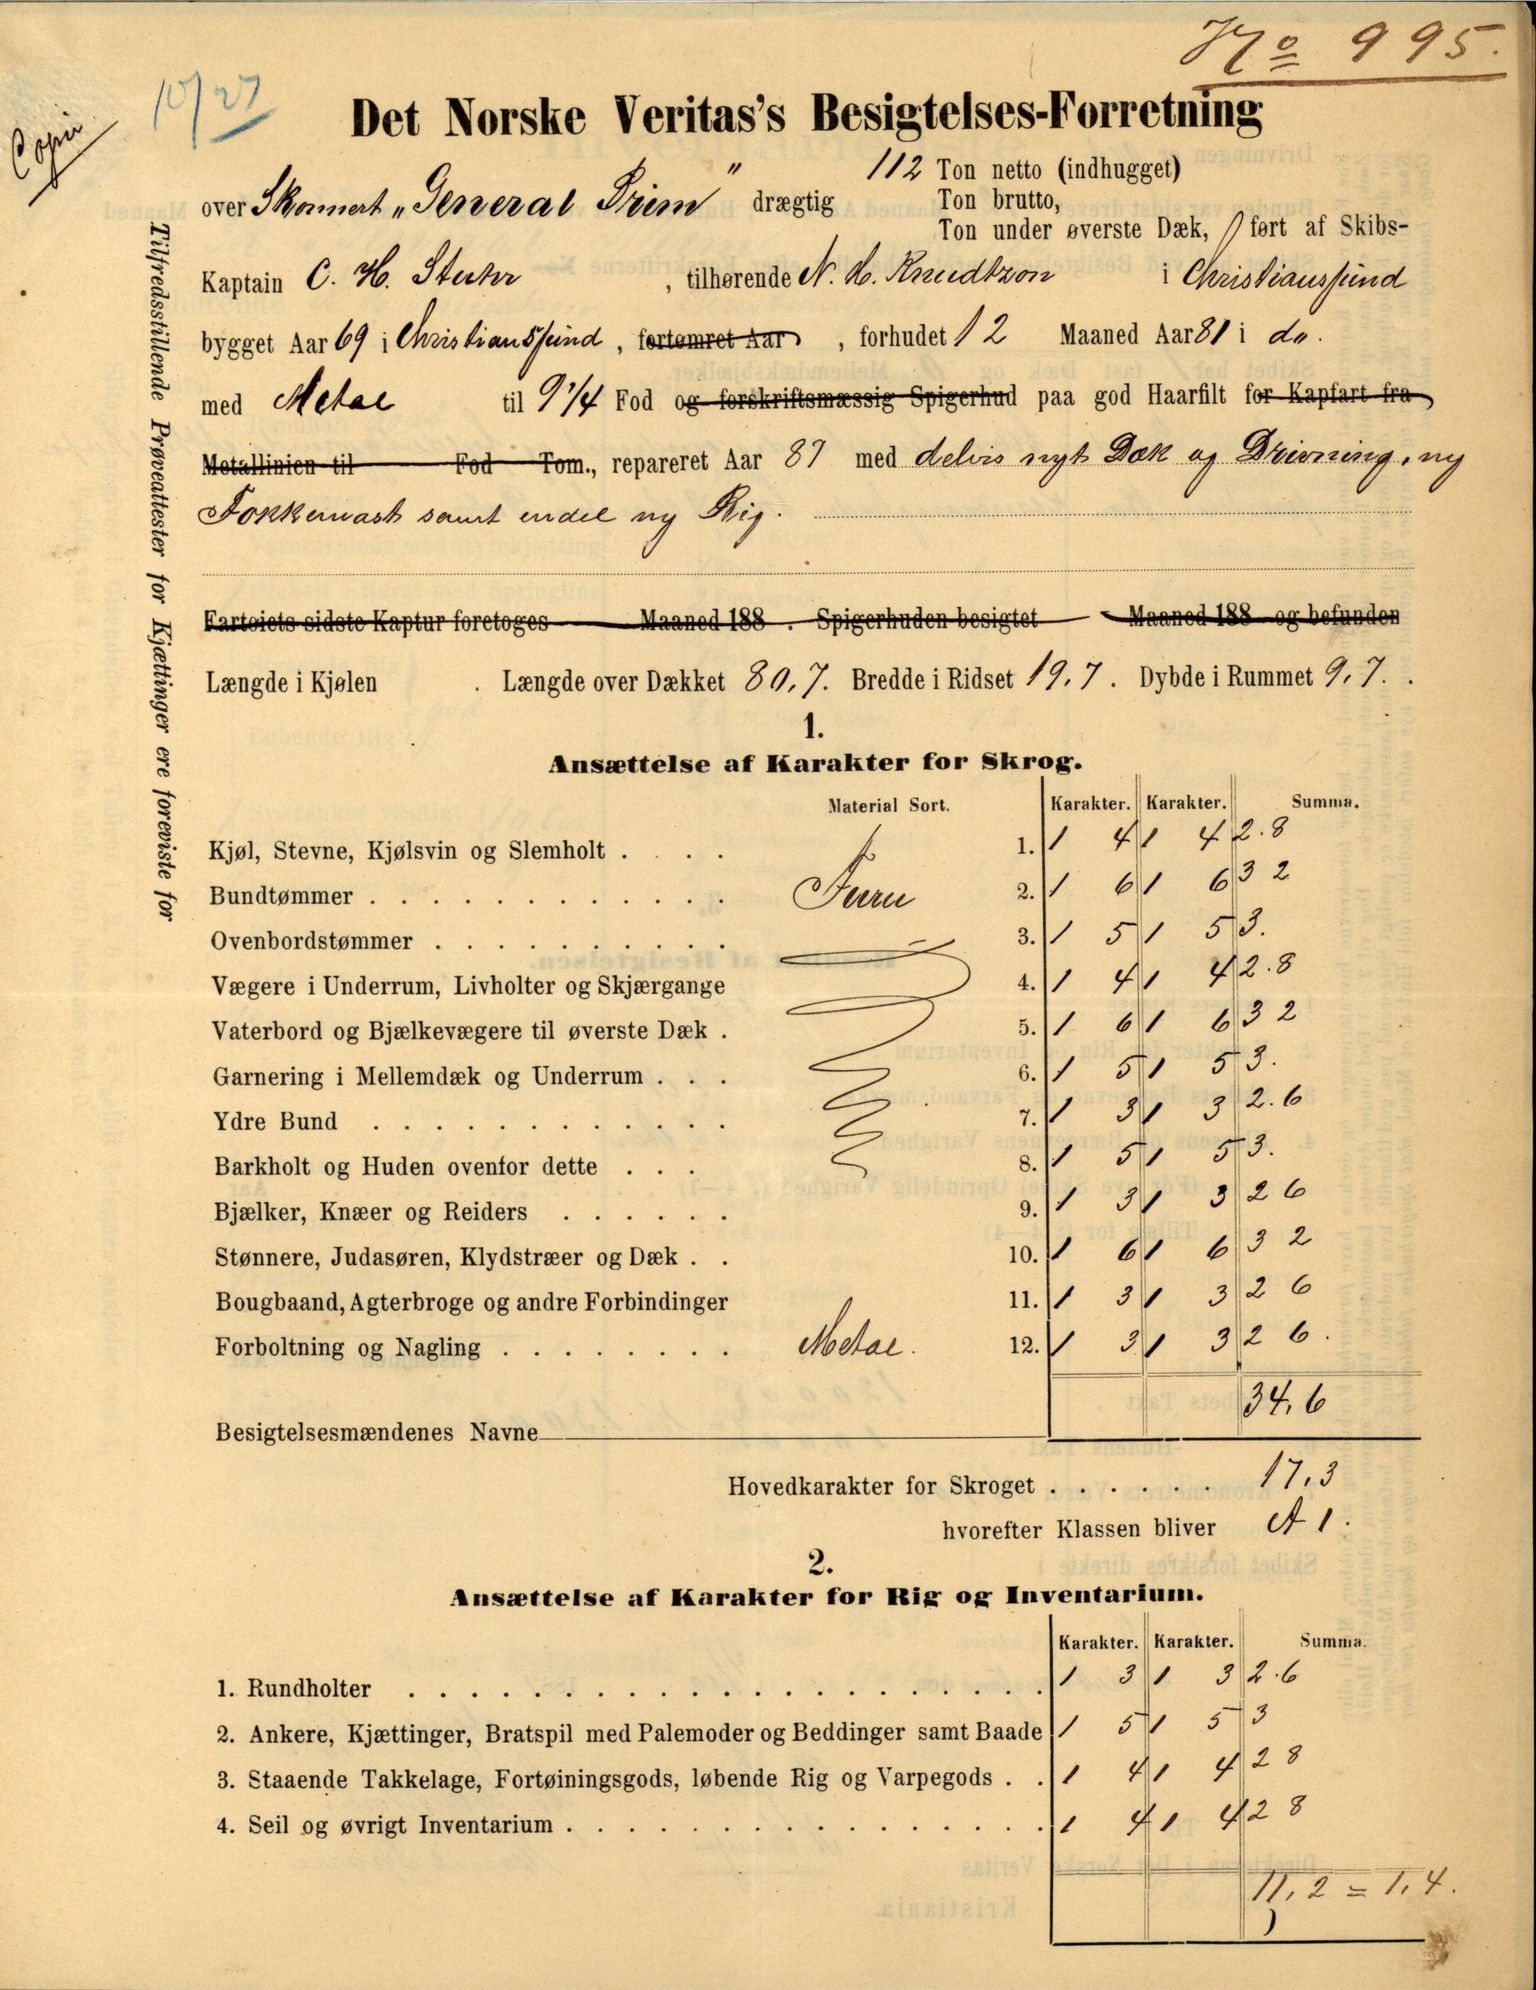 No 995.
10/27
Copie
Det Norske Veritas's Besigtelses-Forretning
over Skonnert „General Prim" drægtig 112 Ton netto (indhugget)
Ton brutto,
Ton under øverste Dæk, ført af Skibs-
Kaptain C. H. Stuhr, tilhørende N. H. Knudtzon i Christianssund
bygget Aar 69 i Christianssund, fortømret Aar , forhudet 12 Maaned Aar 81 i do.
med Metal til 9 1/4 Fod og forskriftsmæssig Spigerhud paa god Haarfilt for Kapfart fra
Metallinien til Fod Tom., repareret Aar 87 med delvis nyt Dæk og Drivning, ny
Fokkemast samt endel ny Rig.
Fartøiets sidste Kaptur foretoges Maaned 188 . Spigerhuden besigtet Maaned 188 og befunden
Længde i Kjølen . Længde over Dækket 80,7. Bredde i Ridset 19,7. Dybde i Rummet 9,7.
Tilfredsstillende Prøveattester for Kjættinger ere foreviste for
1.
Ansættelse af Karakter for Skrog.
Material Sort. Karakter. Karakter. Summa.
Kjøl, Stevne, Kjølsvin og Slemholt . . . . 1. 1 4 1 4 2.8
Bundtømmer . . . . . . . . . . . . Furu 2. 1 6 1 6 3 2
Ovenbordstømmer . . . . . . . . . . 3. 1 5 1 5 3.
Vægere i Underrum, Livholter og Skjærgange 4. 1 4 1 4 2.8
Vaterbord og Bjælkevægere til øverste Dæk . 5. 1 6 1 6 3 2
Garnering i Mellemdæk og Underrum . . . 6. 1 5 1 5 3.
Ydre Bund . . . . . . . . . . . . 7. 1 3 1 3 2.6
Barkholt og Huden ovenfor dette . . . 8. 1 5 1 5 3.
Bjælker, Knæer og Reiders . . . . . . 9. 1 3 1 3 2 6
Stønnere, Judasøren, Klydstræer og Dæk . . 10. 1 6 1 6 3 2
Bougbaand, Agterbroge og andre Forbindinger 11. 1 3 1 3 2 6
Forboltning og Nagling . . . . . . . . Metal. 12. 1 3 1 3 2 6.
34,6
Besigtelsesmændenes Navne
Hovedkarakter for Skroget . . . . . . 17,3
hvorefter Klassen bliver A 1.
2.
Ansættelse af Karakter for Rig og Inventarium.
Karakter. Karakter. Summa.
1. Rundholter . . . . . . . . . . . . . . . . . . . . 1 3 1 3 2.6
2. Ankere, Kjættinger, Bratspil med Palemoder og Beddinger samt Baade 1 5 1 5 3
3. Staaende Takkelage, Fortøiningsgods, løbende Rig og Varpegods . . 1 4 1 4 2 8
4. Seil og øvrigt Inventarium . . . . . . . . . . . . . . . 1 4 1 4 2 8
11,2 = 1,4.